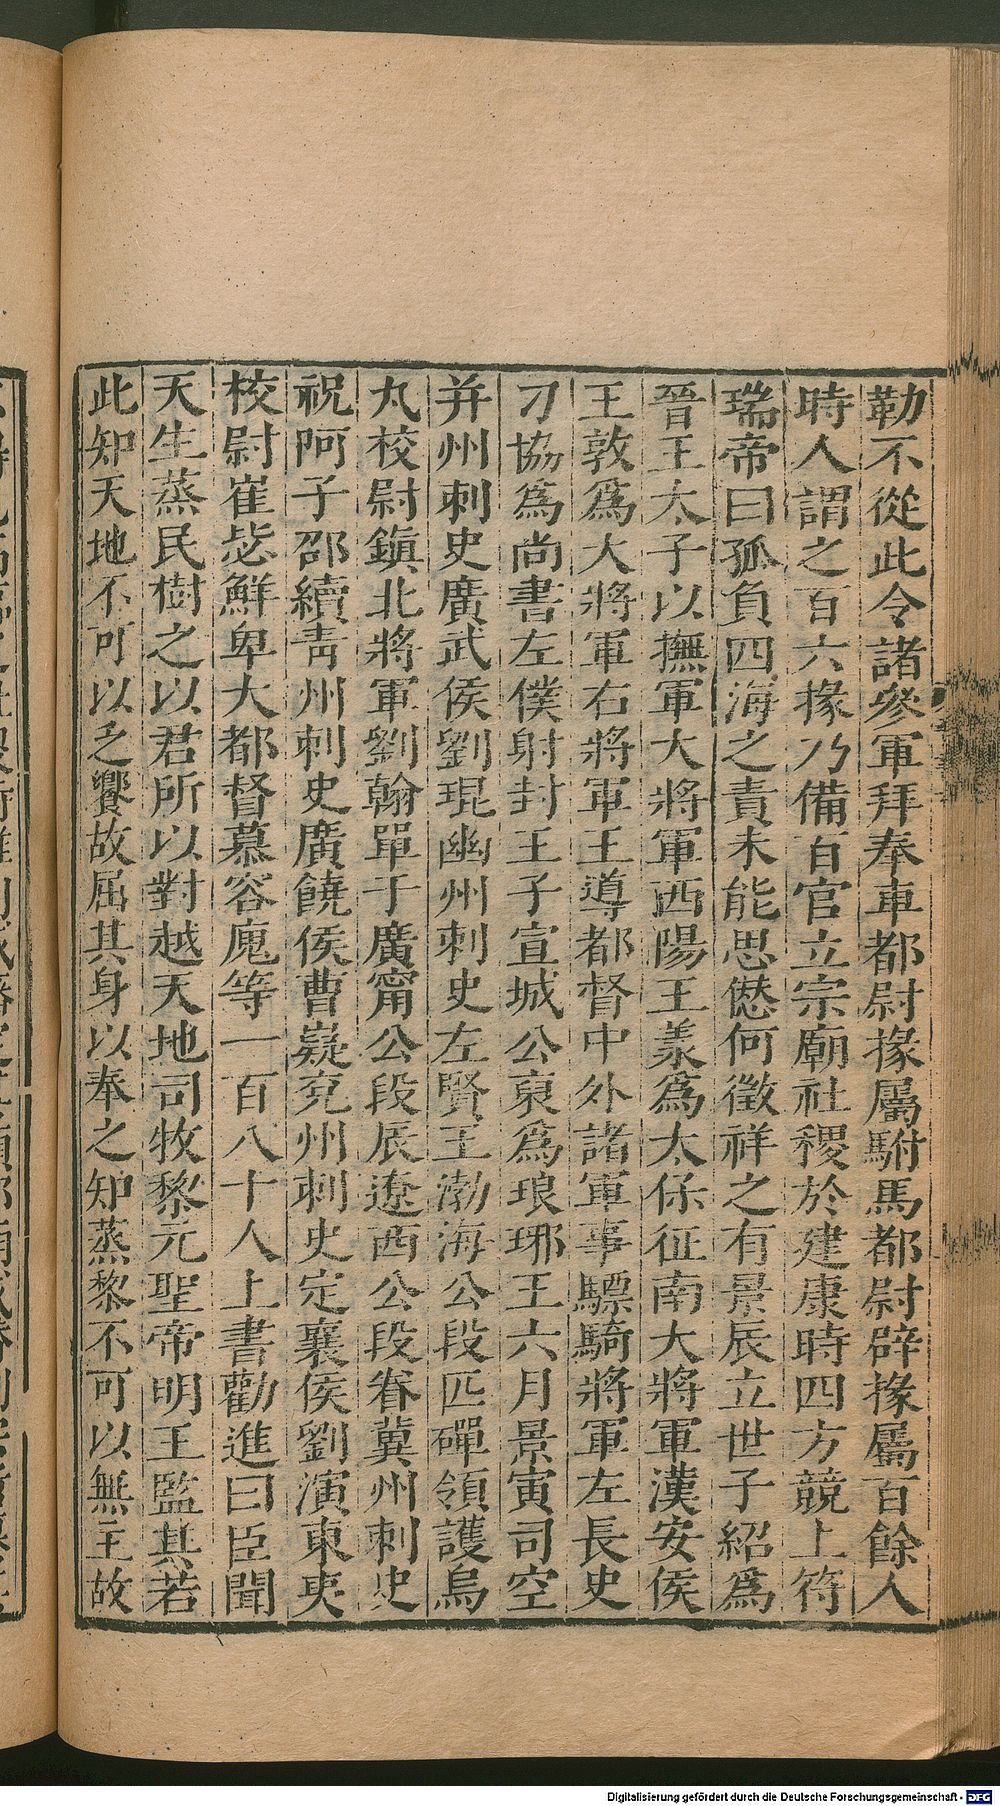 勒不從此令諸參軍拜奉車都尉掾屬駙馬都尉辟掾屬百餘人
時人謂之百六掾乃備百官立宗廟社稷於建康時四方競上符
瑞帝曰孤負四海之責未能思愆何徵祥之有景辰立世子紹爲
晉王太子以撫軍大將軍西陽王羕爲太保征南大將軍漢安侯
王敦爲大將軍右將軍王導都督中外諸軍事驃騎將軍左長史
刁協爲尚書左僕射封王子宣城公裒爲琅琊王六月景寅司空
并州刺史廣武侯劉琨幽州刺史左賢王渤海公段匹磾領護烏
丸校尉鎭北將軍劉翰單于廣甯公段辰遼西公段眷冀州刺史
祝阿子邵續靑州刺史廣饒侯曹嶷兗州刺史定襄侯劉演東夷
校尉崔毖鮮卑大都督慕容廆等一百八十人上書勸進曰臣聞
天生蒸民樹之以君所以對越天地司牧黎元聖帝明王監其若
此知天地不可以乏饗故屈其身以奉之知蒸黎不可以無主故
Digitalisierung gefördert durch die Deutsche Forschungsgemeinschaft - DFG